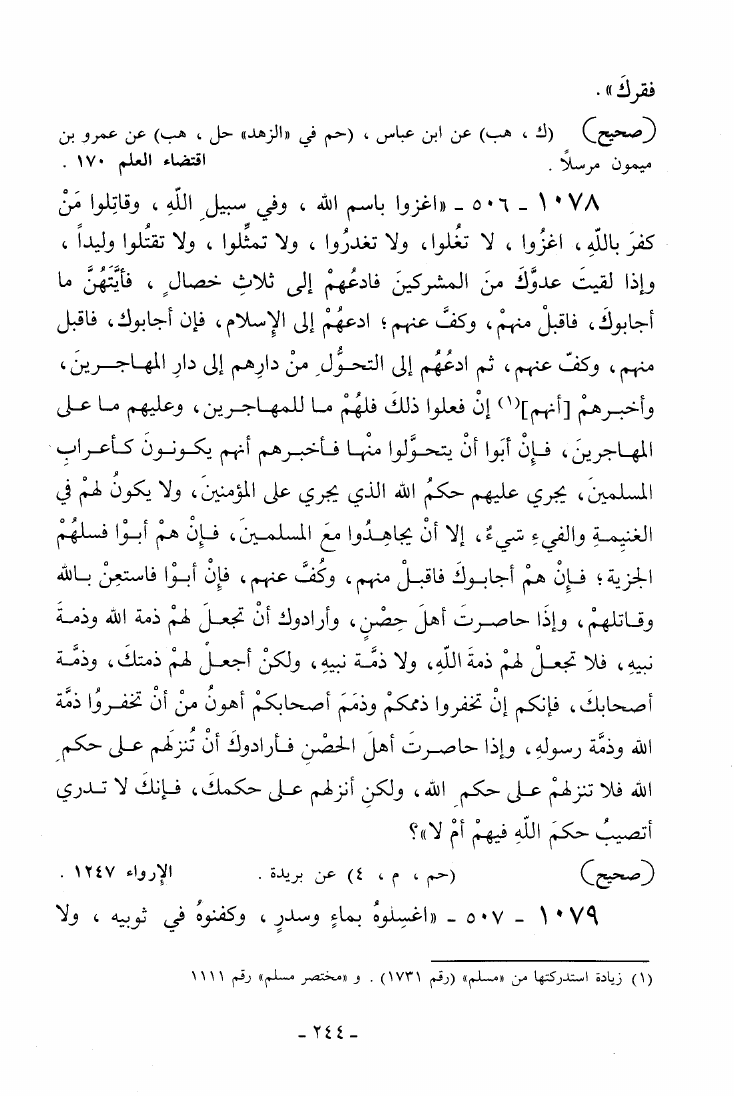 فقركَ» .
(صحيح) (ك ، هب) عن ابن عباس ، (حم في «الزهد» حل ، هب) عن عمرو بن
ميمون مرسلاً . اقتضاء العلم ١٧٠ .
١٠٧٨ - ٥٠٦ - «اغزوا باسم الله ، وفي سبيلِ اللّهِ ، وقاتِلوا مَنْ
كفرَ باللّهِ ، اغزُوا ، لا تغُلوا، ولا تغدرُوا ، ولا تمثِّلوا ، ولا تقتُلوا وليداً ،
وإذا لقيتَ عدوَّكَ منَ المشركينَ فادعُهمْ إلى ثلاثِ خصالٍ ، فأيَّتَهُنَّ ما
أجابوكَ، فاقبلْ منهمْ، وكفَّ عنهم؛ ادعهُمْ إلى الإِسلام، فإن أجابوك، فاقبل
منهم، وكفّ عنهم، ثم ادعُهُم إلى التحوُّلِ منْ دارِهم إلى دارِ المهاجرينَ،
وأخبرهمْ [أنهم](١) إنْ فعلوا ذلكَ فلهُمْ ما للمهاجرين، وعليهم ما على
المهاجرينَ، فإِنْ أبَوا أنْ يتحوَّلوا منْها فأخبرهم أنهم يكونونَ كأعرابِ
المسلمينَ، يجري عليهم حكمُ الله الذي يجري على المؤمنينَ، ولا يكونُ لهمْ في
الغنيمةِ والفيءِ شيءٌ، إلا أنْ يجاهِدُوا معَ المسلمينَ، فإِنْ همْ أبوْا فسلهُمْ
الجزية؛ فإِنْ همْ أجابوكَ فاقبلْ منهم، وكُفَّ عنهم، فإِنْ أبوْا فاستعِنْ بالله
وقاتلهمْ، وإذَا حاصرتَ أهلَ حِصْنٍ، وأرادوك أنْ تجعلَ لهمْ ذمة الله وذمةَ
نبيهِ، فلا تجعلْ لهمْ ذمةَ اللّهِ، ولا ذمَّة نبيهِ، ولكنْ أجعلْ لهمْ ذمتكَ، وذمَّة
أصحابكَ، فإنكم إنْ تخفروا ذممكمْ وذمَمَ أصحابكمْ أهونُ منْ أنْ تخفروُا ذمَّة
الله وذمَّة رسولهِ، وإذا حاصرتَ أهلَ الحصْنِ فأرادوكَ أنْ تُنزلَهم على حكمِ
الله فلا تنزلهمْ على حكمِ الله، ولكنِ أنزلهم على حكمكَ، فإنكَ لا تدري
أتصيبُ حكمَ اللّهِ فيهمْ أمْ لا»؟
(صحيح) (حم، م، ٤) عن بريدة . الإرواء ١٢٤٧ .
١٠٧٩ - ٥٠٧ - «اغسِلوهُ بماءٍ وسدرٍ، وكفنوهُ في ثوبيه ، ولا
(١) زيادة استدركتها من «مسلم» (رقم ١٧٣١) . و «مختصر مسلم» رقم ١١١١
- ٢٤٤ -